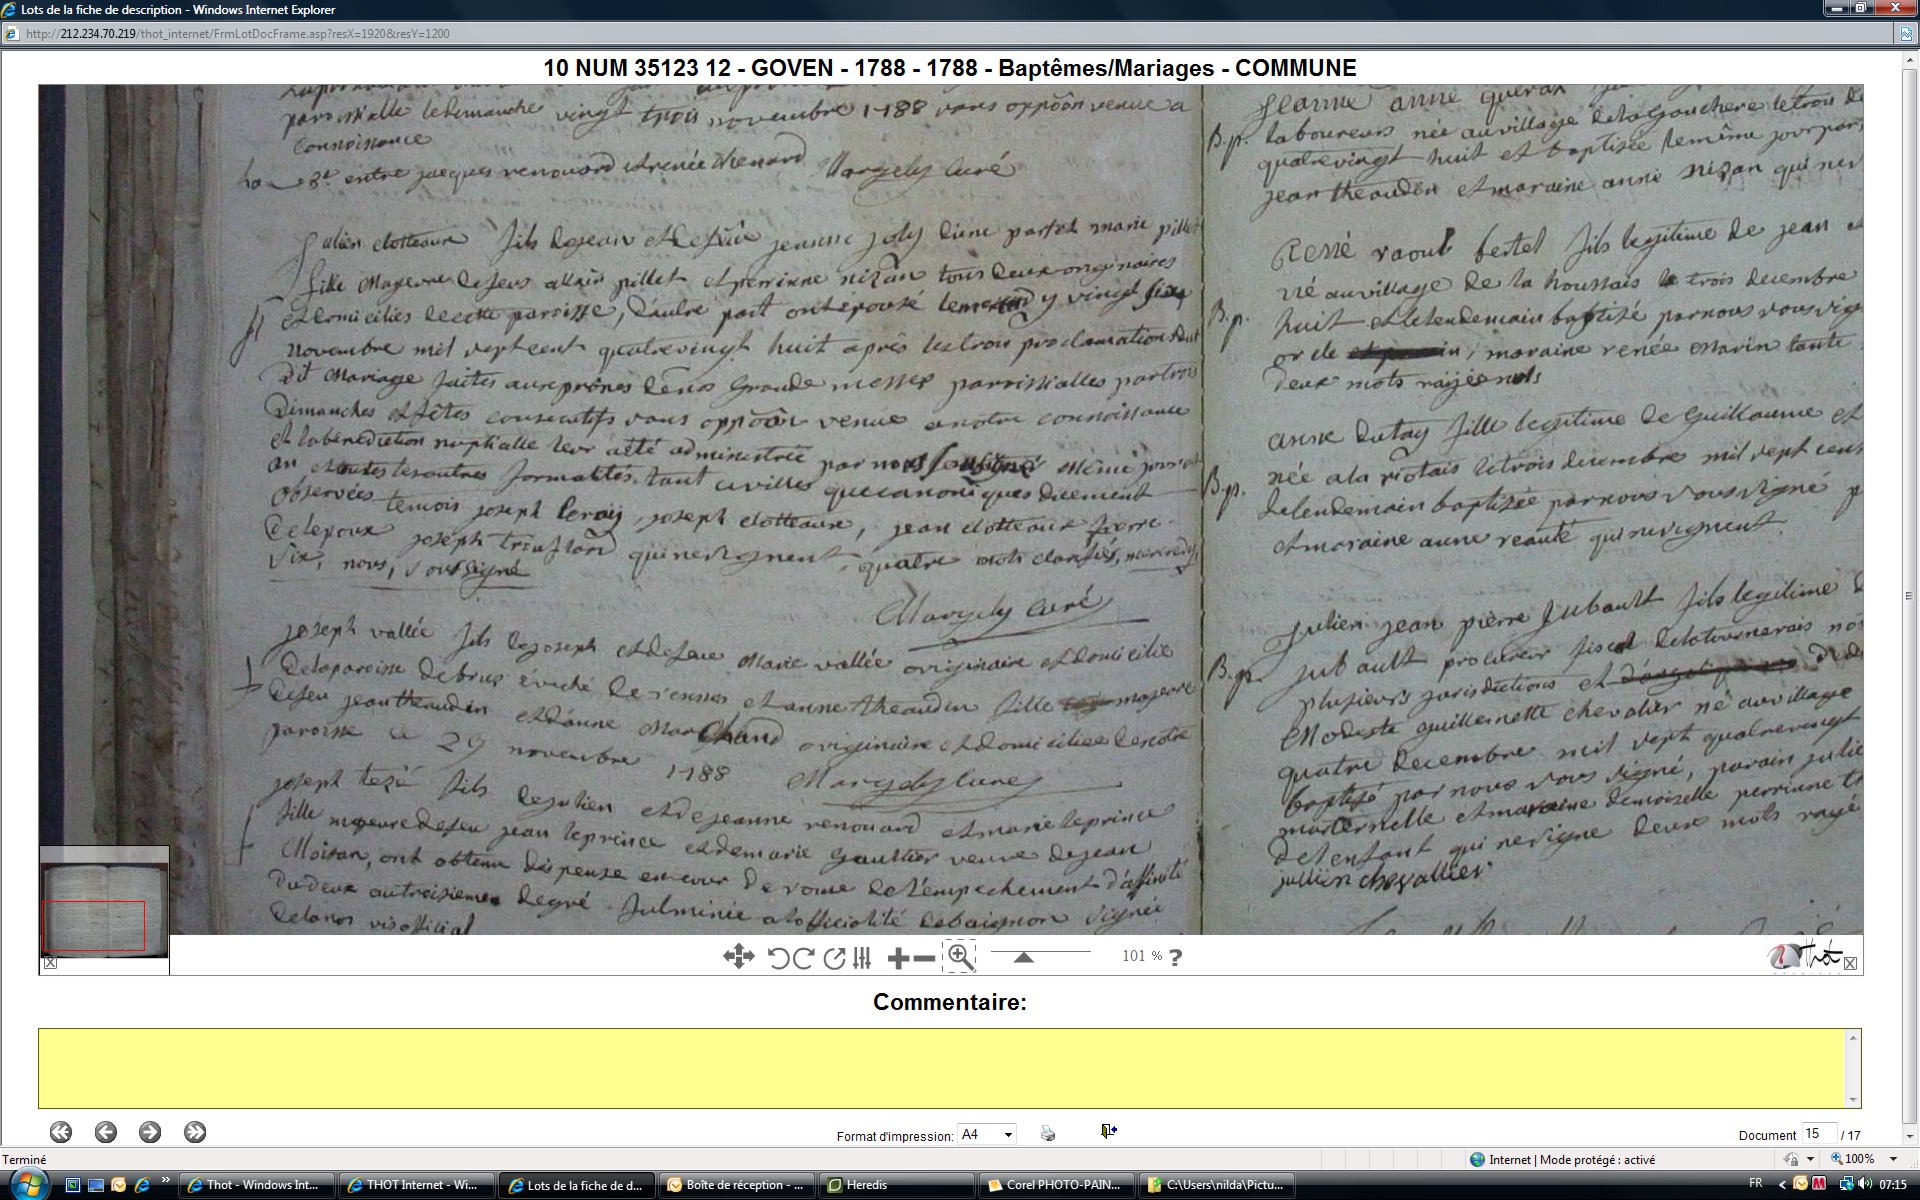 Lots de la fiche de description - Windows Internet Explorer
http://212.234.70.219/thot_internet/FrmLotDocFrame.asp?resX=1920&resY=1200
10 NUM 35123 12 - GOVEN - 1788 - 1788 - Baptêmes/Mariages - COMMUNE
paroissialle le dimanche vingt trois novembre 1788 sans oppôon venue a
connoissance
3e entre jacques renouard et renée thenard Margely curé
julien clotteaux fils de jean et de feüe jeanne joly d'une part et marie pillet
fille majeure de feus allain pillet et perrinne nizan tous deux originaires
et domiciliés de cette paroisse, d'autre part ont epousé le y vingt six
novembre mil sept cent quatre vingt huit après les trois proclamation dudit
Dit mariage faites aux prônes de nos Grande messes paroissialles par trois
Dimanches et fêtes consecutifs sans oppôon venue a notre connoissance
et la bénédiction nuptialle leur a été administrée par nous soussigné même jour et
an et toutes les autres formalités, tant civilles que canoniques duement
observées temois joseph leroy, joseph clotteaux, jean clotteaux frere
De lepoux joseph qui ne signent, quatre mots mercredy,
six, nous, soussigné
Margely curé
joseph vallée fils de joseph et de feue Marie vallée originaire et domicilié
De la paroisse de brus évêché de rennes et anne theaudin fille majeure
de feu jean theaudin et d'anne Marchand originaire et domiciliée de notre
paroisse ce 29 novembre 1788 Margely curé
joseph tezé fils de julien et de jeanne renouard et marie leprince
fille majeure de feu jean leprince et de marie Gaultier veuve de jean
Moisan, ont obtenu dispense en cour de rome de l'empechement d'affinité
du deux au troisieme degré fulminée a lofficialité de baignon signée
Delanos visofficial
jeanne anne
B.p. laboureurs née au village de la Gauchere le trois de
quatrevingt huit et baptisée le même jour par
jean theaudin et maraine anne Nizan qui ne
René raoul bertel fils legitime de jean et
né au village de la houssais le trois decembre
B.p. huit et le lendemain baptisé par nous sous sig
or de maraine renée Marin tante
deux mots raijés nuls
anne dutay fille legitime de Guillaume et
née a la riotais le trois decembre mil sept cens
B.p. de lendemain baptisée par nous sous signé p
et maraine anne reauté qui ne signent
julien jean pierre jubault fils legitime d
B.p. jubault procureur fiscal de la tournerais no
plusieurs jurisdictions et
Modeste guillemette chevalier né au village
quatre decembre mil sept quatrevingt
baptisé par nous sous signé, parain julie
maternelle et maraine demoiselle perrinne th
de l enfant qui ne signe deux mots rayé
jullien chevallier
101 %
?
Thot
Commentaire:
Format d'impression: A4
Document 15 / 17
Terminé
Internet | Mode protégé : activé
100%
Thot - Windows Int...
THOT Internet - Wi...
Lots de la fiche de d...
Boîte de réception - ...
Heredis
Corel PHOTO-PAIN...
C:\Users\nilda\Pictu...
FR
07:15